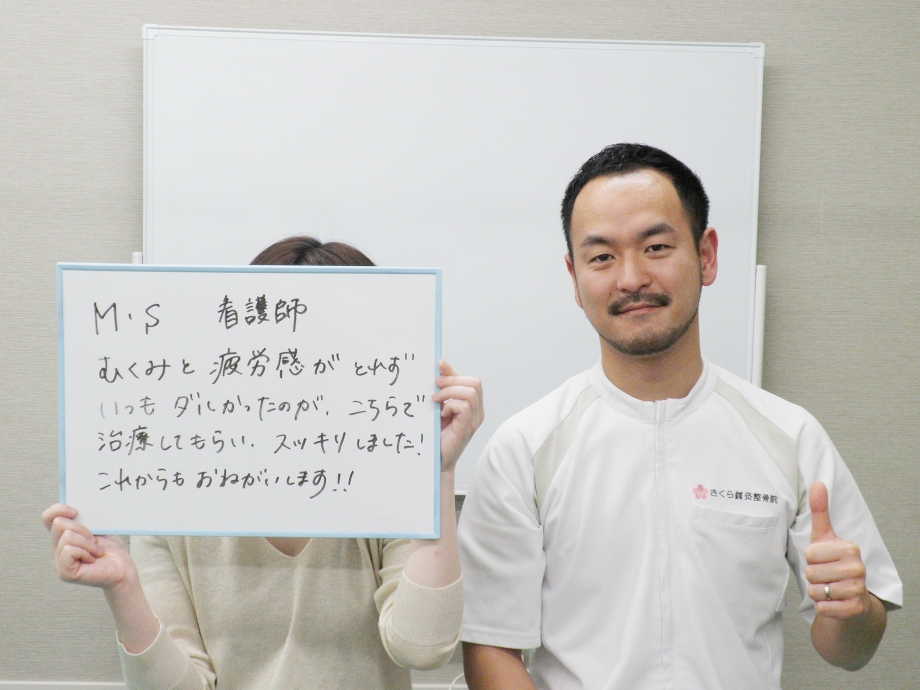 M・S 看護師
むくみと疲労感がとれず
いつもダルかったのが、こちらで
治療してもらい、スッキリしました!
これからもおねがいします!!
さくら鍼灸整骨院